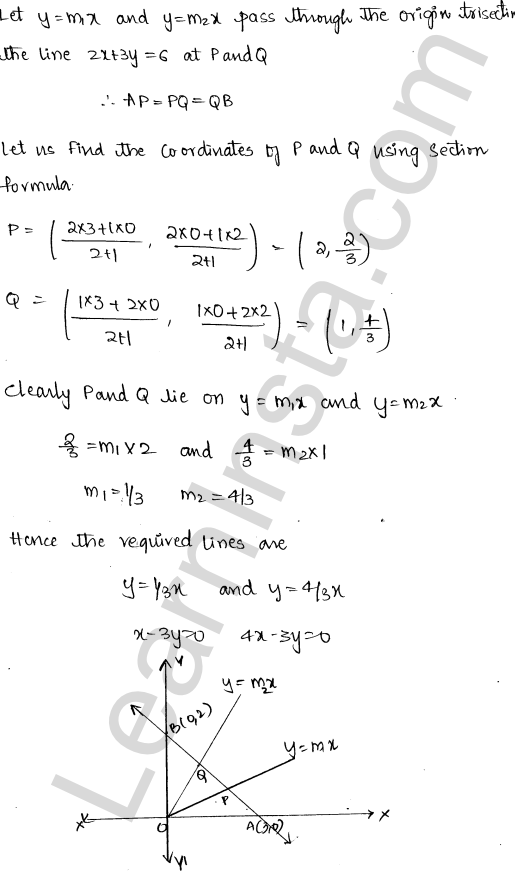 Let y=m₁x and y=m₂x pass through the origin trisectin
the line 2x+3y=6 at P and Q
∴ AP=PQ=QB
Let us find the coordinates of P and Q using section
formula.
P = (2×3+1×0/2+1, 2×0+1×2/2+1) = (2, 2/3)
Q = (1×3+2×0/2+1, 1×0+2×2/2+1) = (1, 4/3)
Clearly P and Q lie on y=m₁x and y=m₂x.
2/3=m₁×2 and 4/3=m₂×1
m₁=1/3 m₂=4/3
Hence the required lines are
y=1/3x and y=4/3x
x-3y=0 4x-3y=0
Y
y=m₂x
B(0,2)
y=m₁x
Q
P
X' O A(3,0) X
Y'
LearnInsta.com